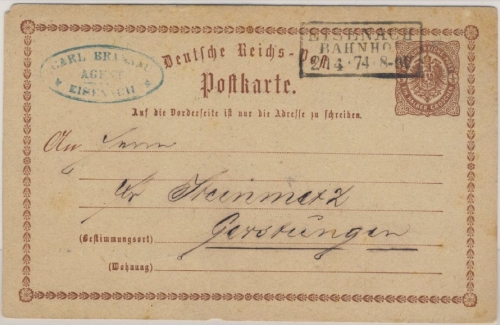 CARL
AGENT
EISENACH
EISENACH
BAHNHOF
4 74 8-9V
Deutsche Reichs-Post
Postkarte.
Auf die Vorderseite ist nur die Adresse zu schreiben.
An Herrn
Steinmetz
Gerstungen
(Bestimmungsort)
(Wohnung)